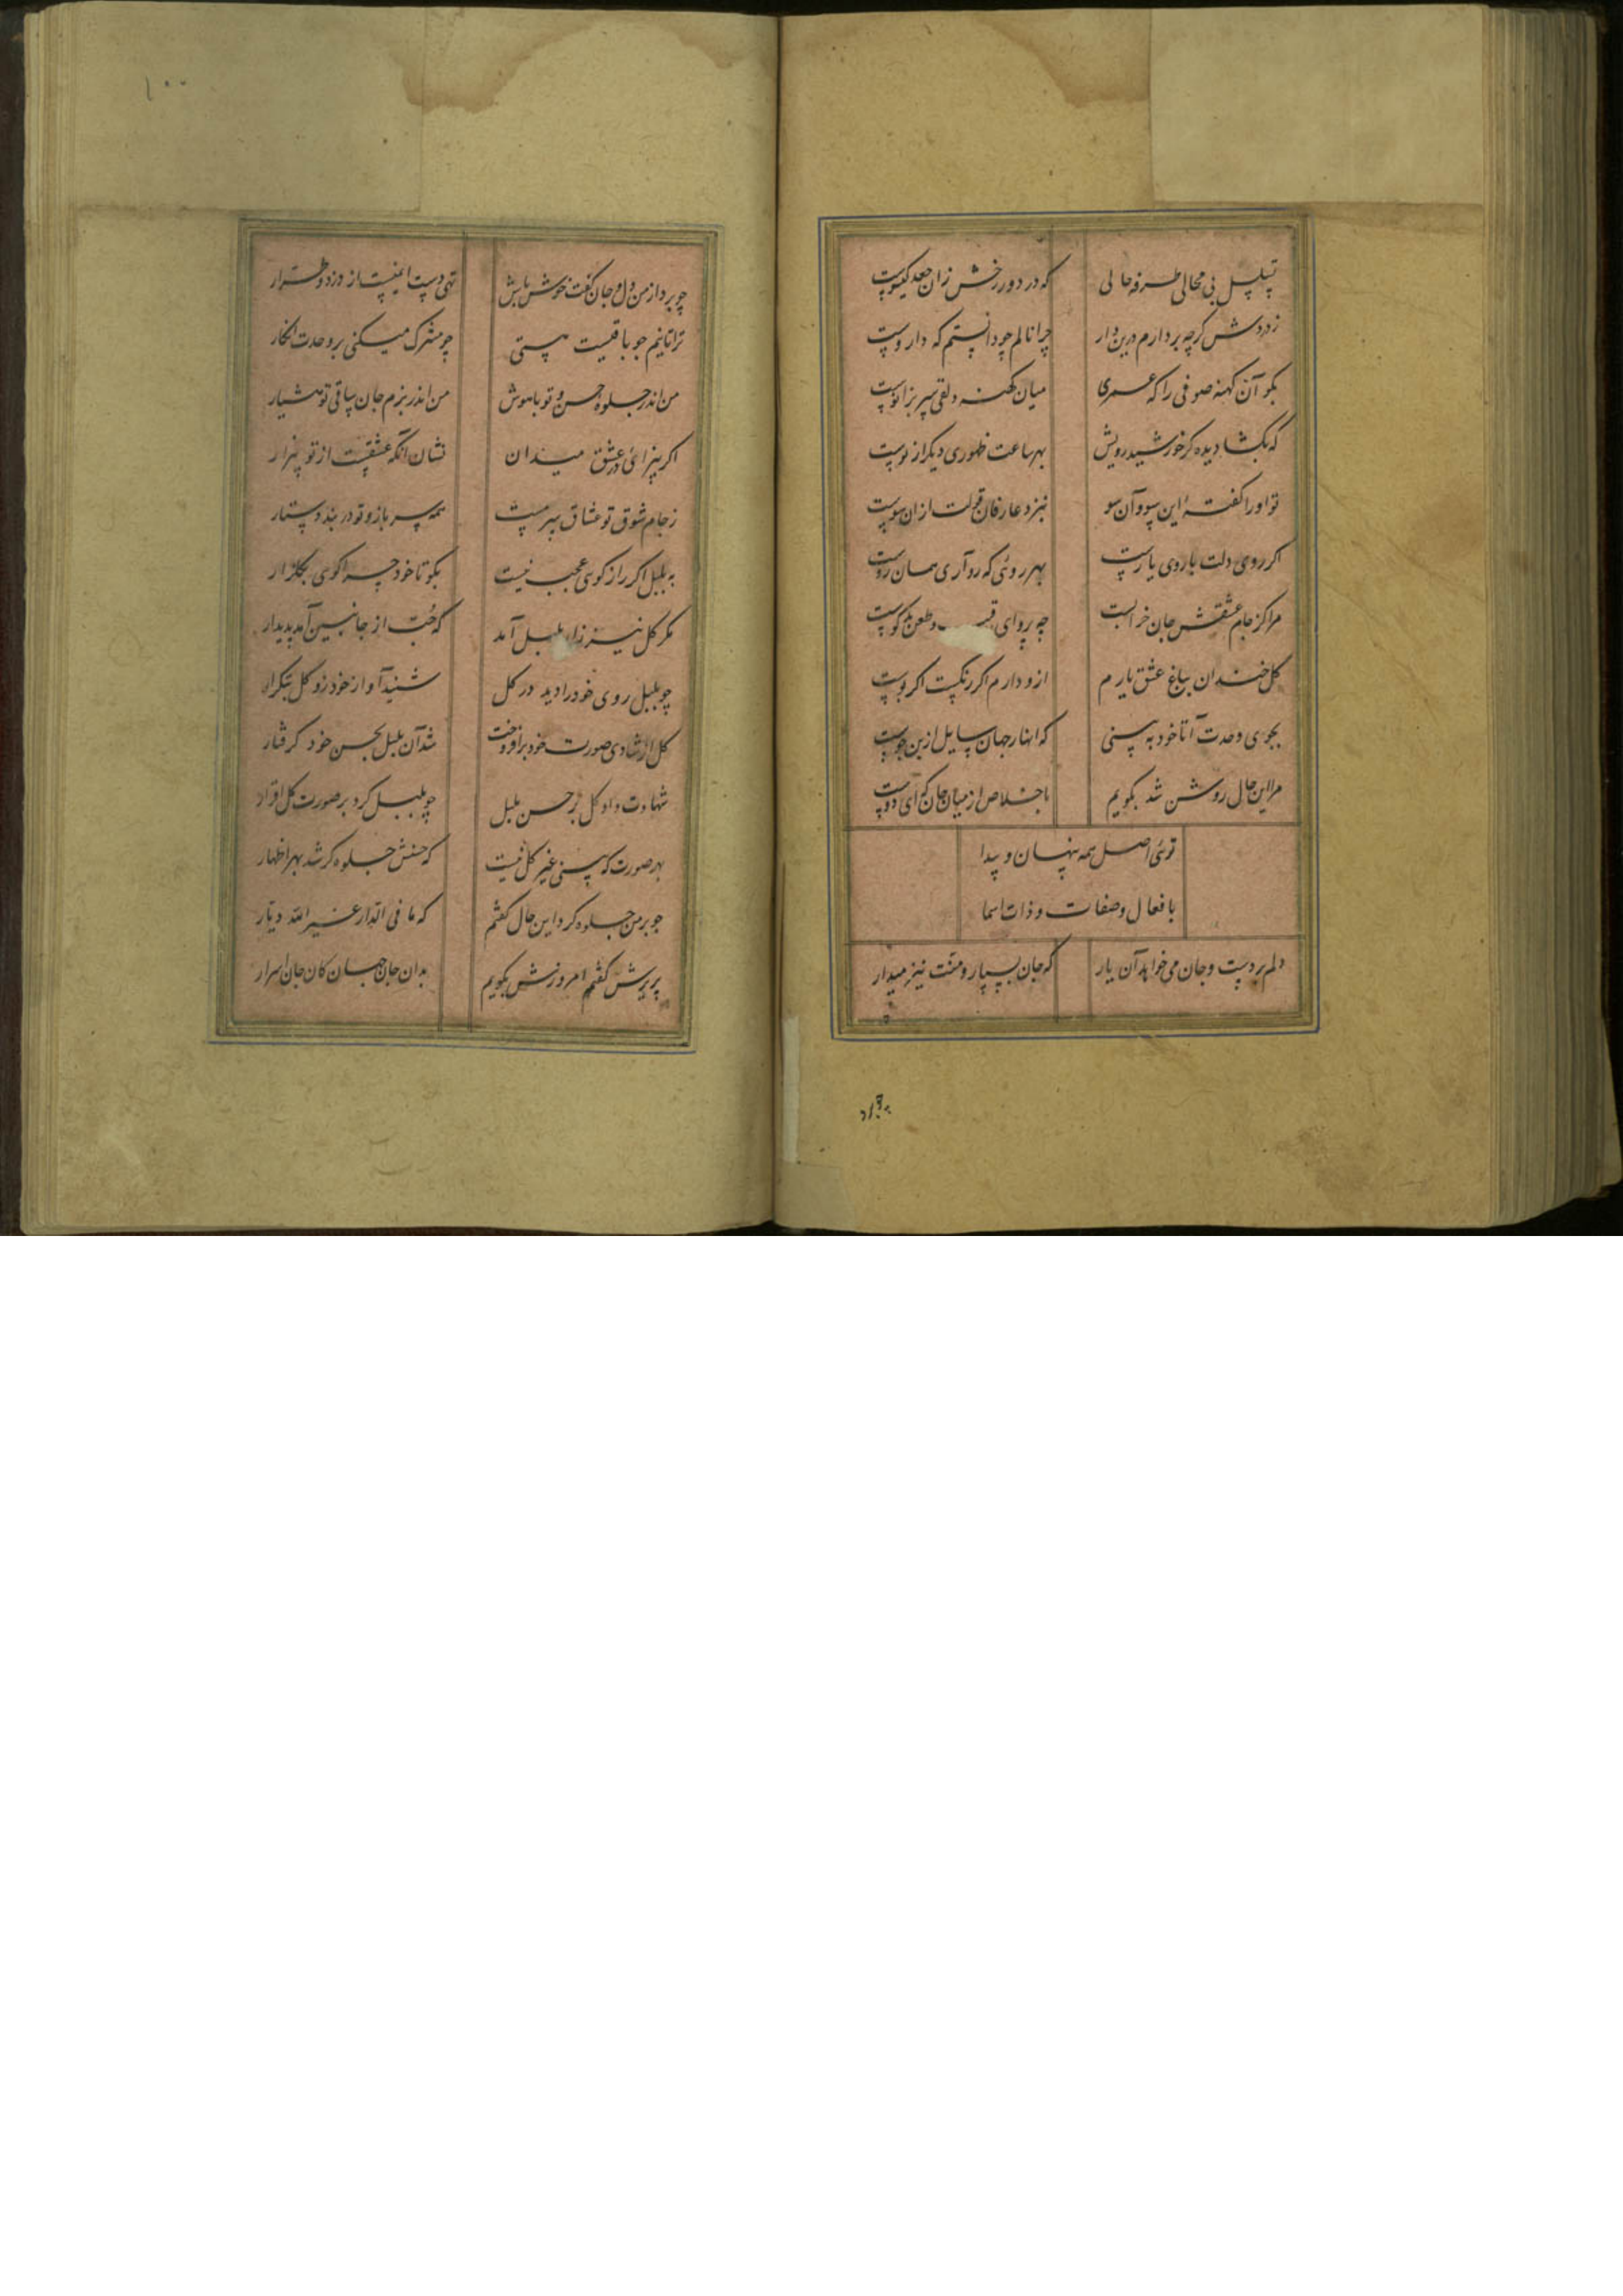 تسلسل بی محالی طرفه حالی
که در دور رخش زان جعد گیسوست
ز دردش گرچه بر دارم درین دار
چرا نالم چو دانستم که داروست
بگو آن کهنه صوفی را که عمری
میان کهنه دلقی سر بزانوست
که بگشا دیده کز خورشید رویش
بهر ساعت ظهوری دیگر از نوست
تو او را گفتهٔ این سو و آن سو
نبزد عارفان قولت از ان سوست
اگر روی دلت با روی یارست
بهر روئی که رو آری همان روست
مرا کز جام عشقش جان خرابست
چه پروای و طعن بدگوست
گل خندان بباغ عشق یارم
ازو دارم اگر رنگست اگر بوست
بجوی وحدت آ تا خود به بینی
که انهار جهان سایل ازین جوست
مرا این حال روشن شد بگویم
باخلاص از میان جان که ای دوست
توئی اصل همه پنهان و پیدا
بافعال و صفات و ذات اسما
دلم بردست و جان می خواهد آن یار
که جان بسپار و منت نیز میدار
چو برد
۱۰۰
چو برد از من دل و جان گفت خوش باش
تهی دست ایمنیست از دزد و طرار
ترا تا نیم جو باقیست هستی
چو مشرک میکنی بر وحدت انکار
من اندر جلوه حسن و تو باهوش
من اندر بزم جان ساقی تو هشیار
اگر بیزائی در عشق میدان
نشان انکه عشقیست از تو بیزار
ز جام شوق تو عشاق سرمست
همه سر باز و تو در بند دستار
به بلبل اگر راز گوی عجب نیست
بگو تا خود چرا گوی بگلزار
مگر گل نیز زار بلبل آمد
که حُبّ از جانبین آمد پدیدار
چو بلبل روی خود را دید در گل
شنید آواز خود زو گل بتکرار
گل از شادی صورت خود برافروخت
شد آن بلبل بحسن خود گرفتار
شهادت داد گل بر حسن بلبل
چو بلبل کرد بر صورت گل اقرار
بهر صورت که بینی غیر گل نیست
که حسنش جلوه گر شد بهر اظهار
چو بر من جلوه کرد این حال گفتم
که ما فی الدار غیر الله دیّار
پریرش گفتم امروزش بگویم
بدان جان جهان کان جان اسرار